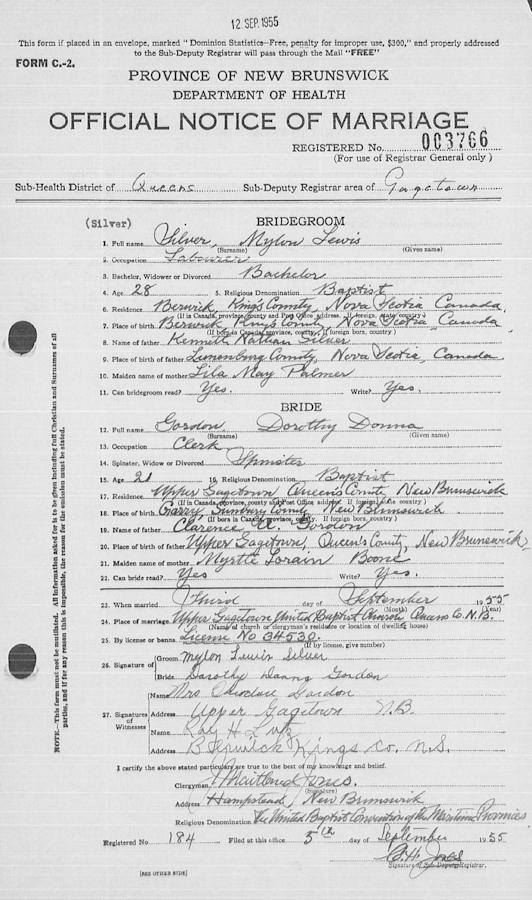 12 SEP. 1955
This form if placed in an envelope, marked " Dominion Statistics–Free, penalty for improper use, $300," and properly addressed
to the Sub-Deputy Registrar will pass through the Mail "FREE"
FORM C.-2.
PROVINCE OF NEW BRUNSWICK
DEPARTMENT OF HEALTH
OFFICIAL NOTICE OF MARRIAGE
REGISTERED No. 003766
(For use of Registrar General only )
Sub-Health District of Queens Sub-Deputy Registrar area of Gagetown
(Silver) BRIDEGROOM
1. Full name Silver, Mylon Lewis
(Surname) (Given name)
2. Occupation Labourer
3. Bachelor, Widower or Divorced Bachelor
4. Age 28 5. Religious Denomination Baptist
6. Residence Berwick King's County, Nova Scotia Canada
(If in Canada, province, county and Post Office address. If foreign, state country )
7. Place of birth Berwick King's County Nova Scotia Canada
(If born in Canada, province, county. If foreign born, country )
8. Name of father Kenneth Nathan Silver
9. Place of birth of father Lunenburg County, Nova Scotia, Canada
10. Maiden name of mother Lila May Palmer
11. Can bridegroom read? Yes. Write? Yes.
BRIDE
12. Full name Gordon, Dorothy Donna
(Surname) (Given name)
13. Occupation Clerk
14. Spinster, Widow or Divorced Spinster
15. Age 21 16. Religious Denomination Baptist
17. Residence Upper Gagetown Queen's County New Brunswick
(If in Canada, province, county and Post Office address. If foreign, state country )
18. Place of birth Sunbury County New Brunswick
(If born in Canada, province, county. If foreign born, country )
19. Name of father Clarence A. Gordon
20. Place of birth of father Upper Gagetown, Queen's County, New Brunswick,
21. Maiden name of mother Myrtle Lorain Boone
22. Can bride read? Yes Write? Yes.
23. When married Third day of September 1955
(Month) (Year)
24. Place of marriage Upper Gagetown United Baptist Church Queens Co. N.B.
(Name of church or clergyman's residence or location of dwelling house)
25. By license or banns License No 34530.
(If by license, give number)
26. Signature of Groom Mylon Lewis Silver
Bride Dorothy Donna Gordon
27. Signatures of Witnesses
Name Mrs Gordon
Address Upper Gagetown N.B.
Name Ray H. Lutz
Address Berwick Kings Co. N.S.
I certify the above stated particulars are true to the best of my knowledge and belief.
Clergyman
(Signature)
Address Hampstead, New Brunswick
Religious Denomination The United Baptist Convention of the Maritime Provinces
Registered No 184 Filed at this office 5th day of September 1955
C.H. Jones
Signature of Sub-Deputy Registrar.
[SEE OTHER SIDE]
NOTE.—This form must not be mutilated. All information asked for is to be given including full Christian and Surnames of all
parties, and if for any reason this is impossible, the reason for the omission must be stated.